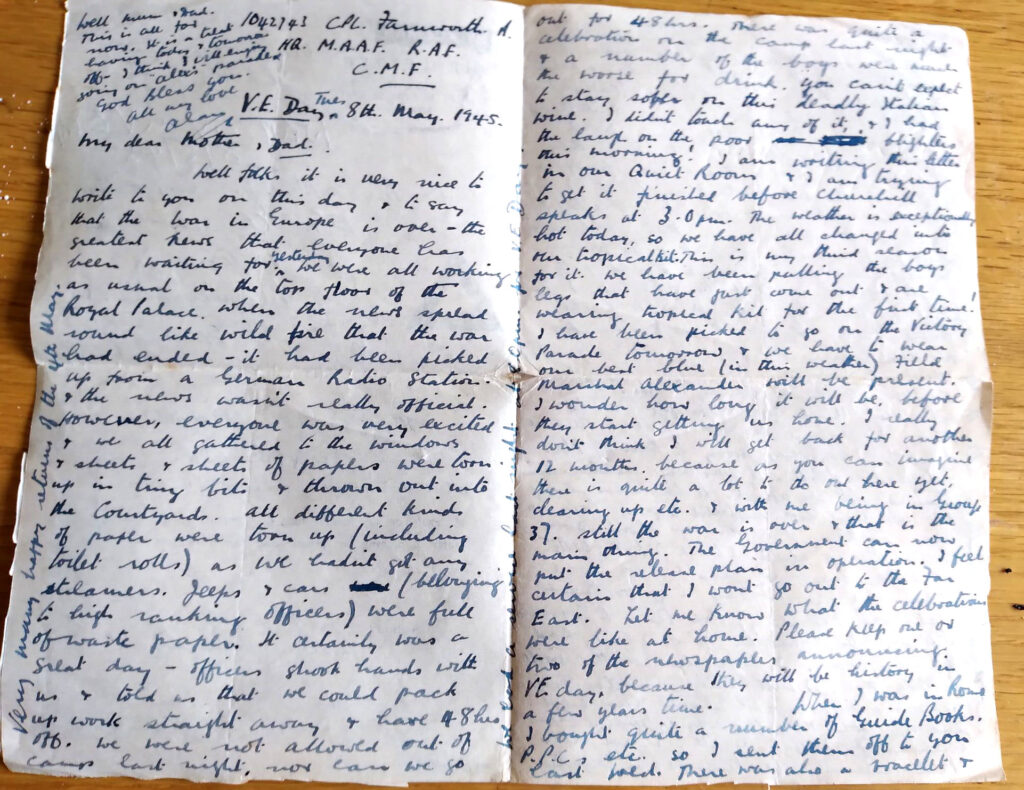 Well Mum & Dad.
This is all for
now. It is a treat
having today & tomorrow
off. I think I will enjoy
going on "Alex's" parade
God Bless you.
All my love
Alan
1042943 CPL. Farnworth A.
HQ. M.A.A.F. R.A.F.
C.M.F.
V.E. Day Tues 8th. May. 1945.
My dear Mother & Dad.
Well folks it is very nice to
write to you on this day & to say
that the war in Europe is over - the
greatest news that everyone has
been waiting for. Yesterday we were all working
as usual on the top floor of the
Royal Palace, when the news spread
round like wild fire that the war
had ended - it had been picked
up from a German Radio Station.
& the news wasn't really official.
However, everyone was very excited
& we all gathered to the windows
& sheets & sheets of papers were torn
up in tiny bits & thrown out into
the Courtyards. All different kinds
of paper were torn up (including
toilet rolls) as we hadn't got any
streamers. Jeeps & cars (belonging
to high ranking officers) were full
of waste paper. It certainly was a
great day - officers shook hands with
us & told us that we could pack
up work straight away & have 48 hrs
off. We were not allowed out of
camp last night, nor can we go
Very many happy returns of the 4th May.
out for 48 hrs. There was quite a
celebration on the camp last night
& a number of the boys were much
the worse for drink. You can't expect
to stay sober on this deadly Italian
wine. I didn't touch any of it, & I had
the laugh on the poor blighters
this morning! I am writing this letter
in our Quiet Room & I am trying
to get it finished before Churchill
speaks at 3.0 pm. The weather is exceptionally
hot today, so we have all changed into
our tropical kit. This is my third season
for it. We have been pulling the boys
legs that have just come out & are
wearing tropical kit for the first time!
I have been picked to go on the Victory
Parade tomorrow & we have to wear
our best blue (in this weather) Field
Marshal Alexander will be present.
I wonder how long it will be, before
they start getting us home. I really
don't think I will get back for another
12 months. because as you can imagine
there is quite a lot to do out here yet,
clearing up etc. & with me being in Group
37. Still the war is over & that is the
main thing. The Government can now
put the release plan in operation. I feel
certain that I wont go out to the Far
East. Let me know what the celebrations
were like at home. Please keep one or
two of the newspapers, announcing
VE day, because they will be history in
a few years time. When I was in Rome
I bought quite a number of Guide Books.
P.P.C.s etc. so I sent them off to you
last wed. There was also a bracelet &